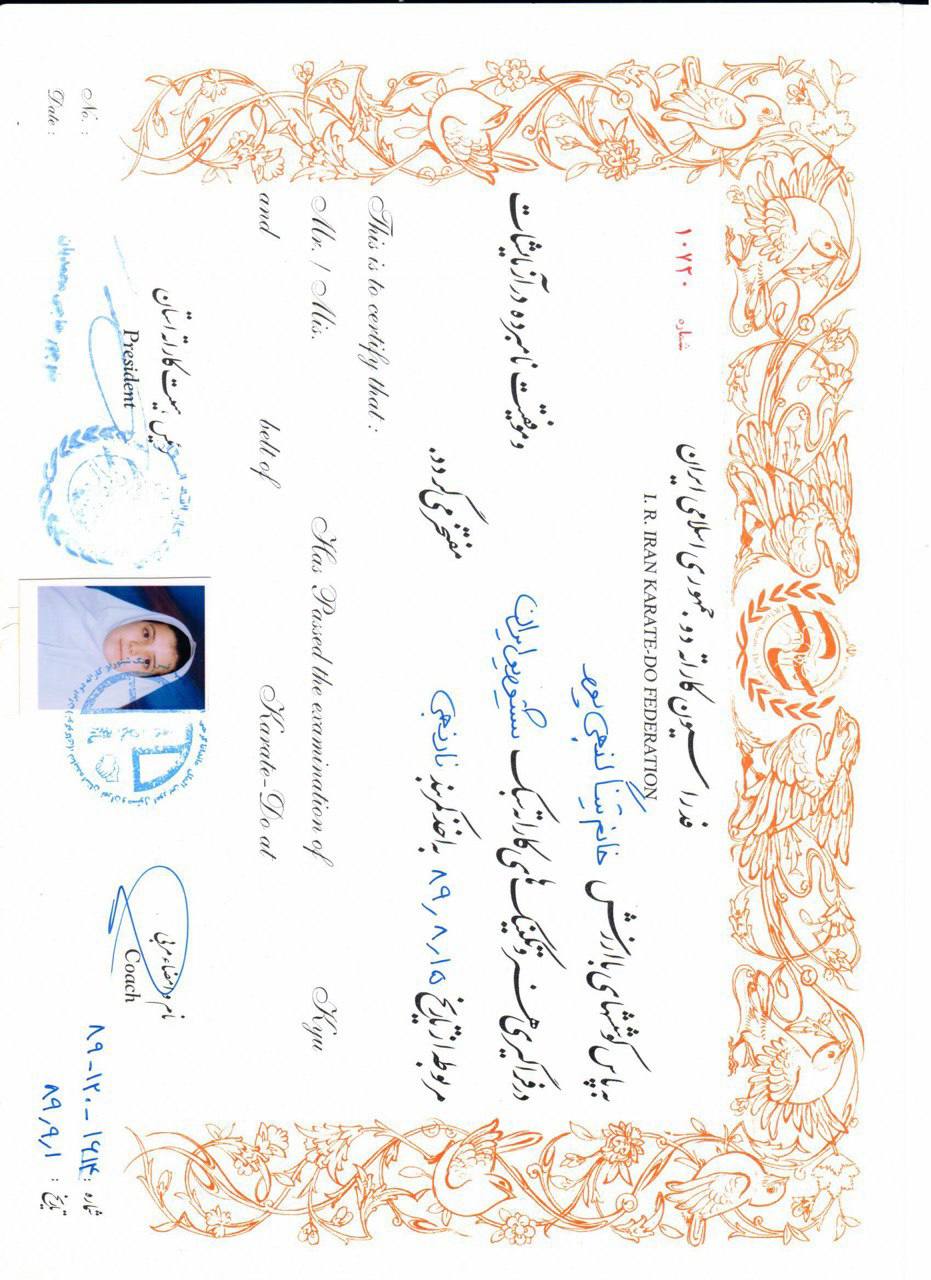 فدراسیون کاراته دو جمهوری اسلامی ایران
شماره ۱۰۷۲۰
I. R. IRAN KARATE-DO FEDERATION
به پاس کوششهای با ارزش خانم تینا گنجی پور
در فراگیری هنر و تکنیک های کاراته سبک شیتوریو ایران و موفقیت نامبرده در آزمایشات
مربوطه از تاریخ ۸۹٫۸٫۱۵ به اخذ کمربند نارنجی مفتخر می گردد.
This is to certify that :
Mr. / Mis. Has Passed the examination of Kyu
and belt of Karate-Do at
رئیس هیئت کاراته استان
President
نام و امضاء مربی
Coach
حاجی محمدیان
No. :
Date :
شماره : ۸۹-۱۲۰-۱۶۱۴
تاریخ : ۸۹٫۹٫۱